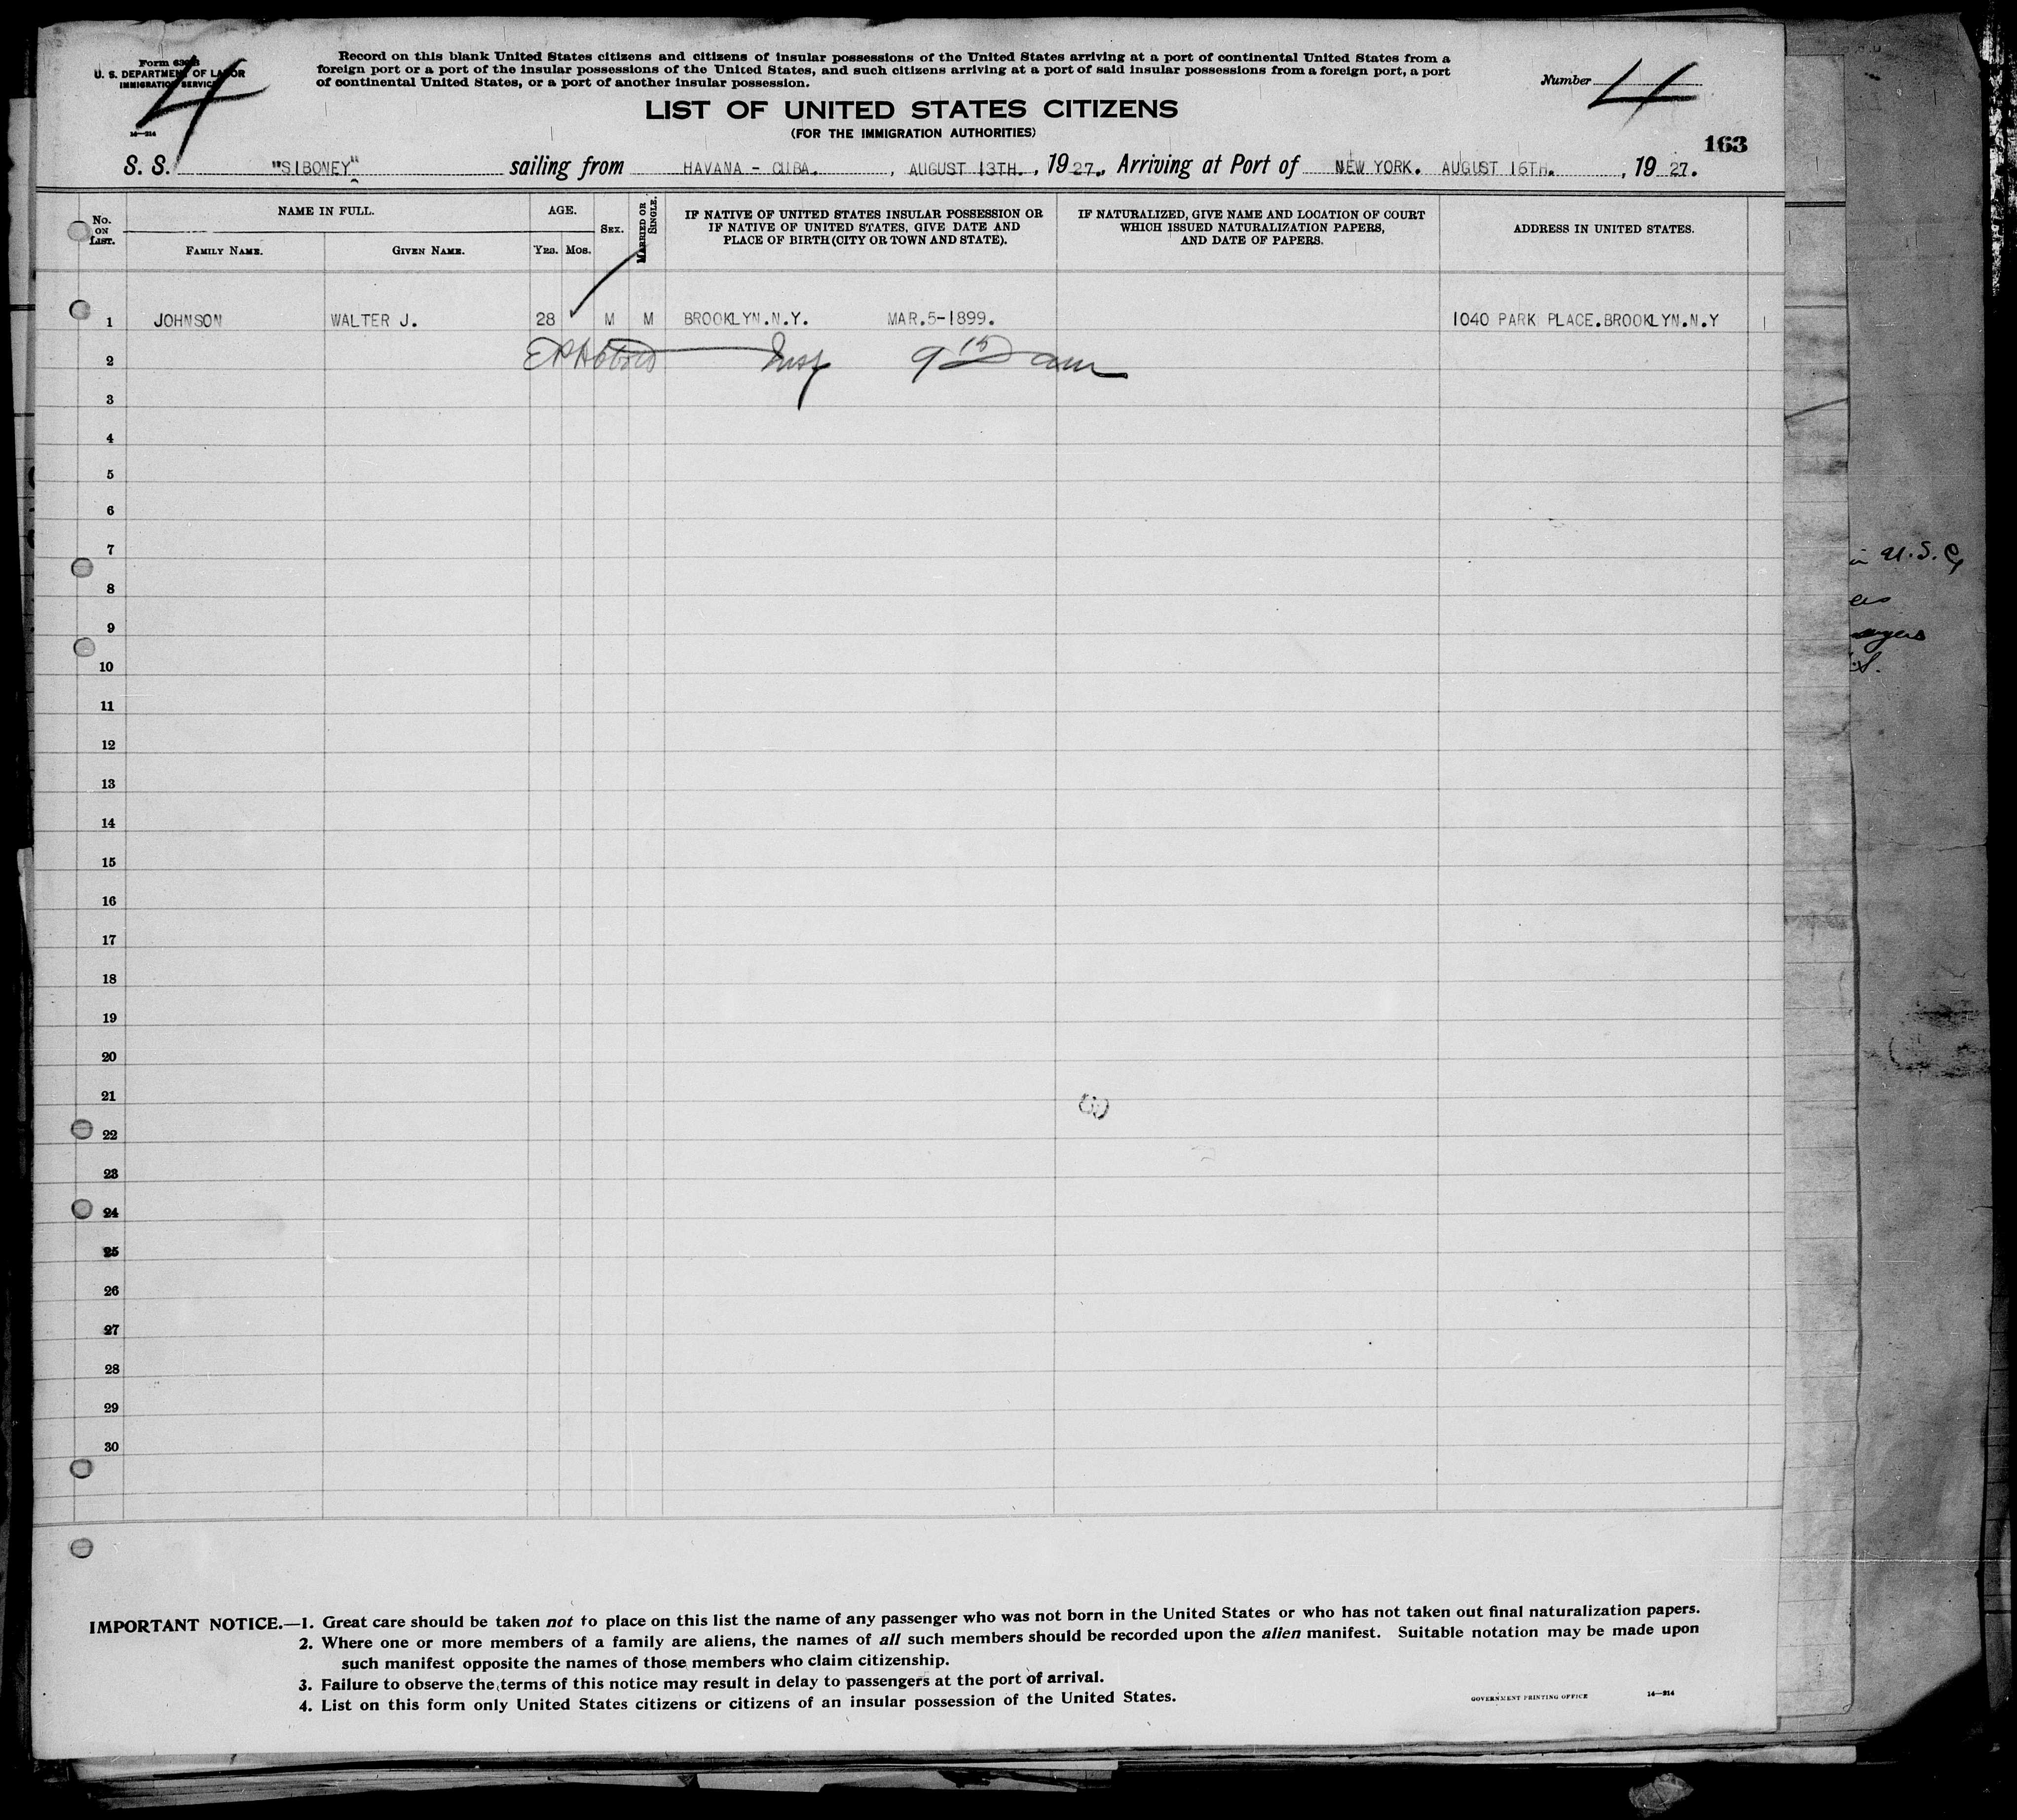 Form 630 B
U. S. DEPARTMENT OF LABOR
IMMIGRATION SERVICE
14—214
4
Record on this blank United States citizens and citizens of insular possessions of the United States arriving at a port of continental United States from a
foreign port or a port of the insular possessions of the United States, and such citizens arriving at a port of said insular possessions from a foreign port, a port
of continental United States, or a port of another insular possession.
Number 4
LIST OF UNITED STATES CITIZENS
(FOR THE IMMIGRATION AUTHORITIES)
163
S. S. "SIBONEY" sailing from HAVANA - CUBA. , AUGUST 13TH. , 1927., Arriving at Port of NEW YORK. AUGUST 16TH. , 1927.
No. ON LIST.
NAME IN FULL.
FAMILY NAME. GIVEN NAME.
AGE.
YRS. MOS.
SEX.
MARRIED OR SINGLE.
IF NATIVE OF UNITED STATES INSULAR POSSESSION OR
IF NATIVE OF UNITED STATES, GIVE DATE AND
PLACE OF BIRTH (CITY OR TOWN AND STATE).
IF NATURALIZED, GIVE NAME AND LOCATION OF COURT
WHICH ISSUED NATURALIZATION PAPERS,
AND DATE OF PAPERS.
ADDRESS IN UNITED STATES.
1 JOHNSON WALTER J. 28 M M BROOKLYN.N.Y. MAR.5-1899. 1040 PARK PLACE.BROOKLYN.N.Y
2 Insp 9 15 am
3
4
5
6
7
8
9
10
11
12
13
14
15
16
17
18
19
20
21
22
23
24
25
26
27
28
29
30
in U.S.C,
IMPORTANT NOTICE.—1. Great care should be taken not to place on this list the name of any passenger who was not born in the United States or who has not taken out final naturalization papers.
2. Where one or more members of a family are aliens, the names of all such members should be recorded upon the alien manifest. Suitable notation may be made upon
such manifest opposite the names of those members who claim citizenship.
3. Failure to observe the terms of this notice may result in delay to passengers at the port of arrival.
4. List on this form only United States citizens or citizens of an insular possession of the United States.
GOVERNMENT PRINTING OFFICE 14—214